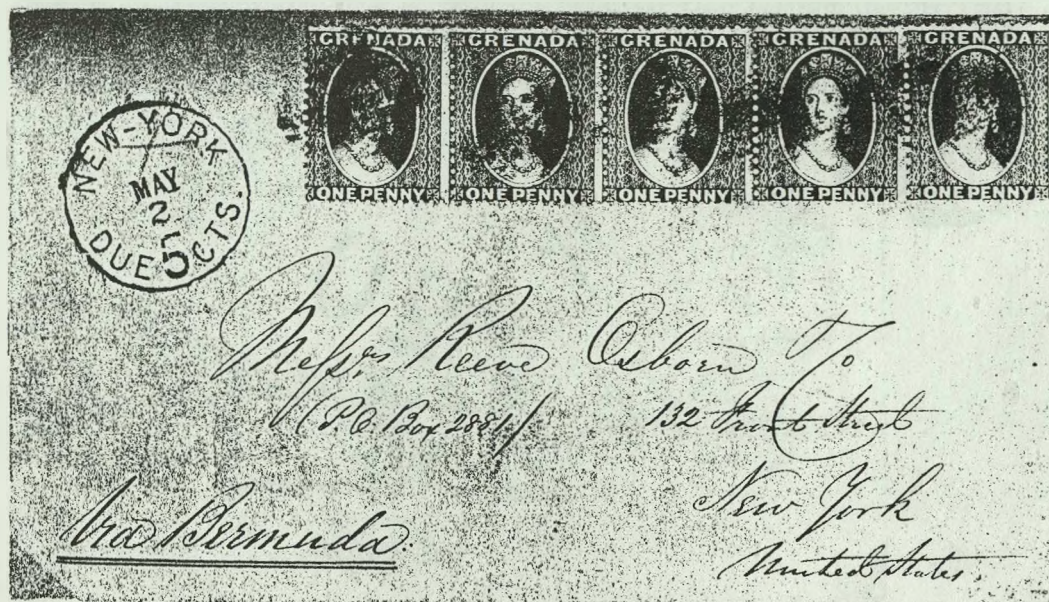 GRENADA GRENADA GRENADA GRENADA GRENADA
ONE PENNY ONE PENNY ONE PENNY ONE PENNY ONE PENNY
NEW-YORK
MAY
2
DUE 5 CTS.
Messrs Reeve Osborn & Co
(P.O. Box 2881)
132 Front Street
New York
United States.
Via Bermuda.